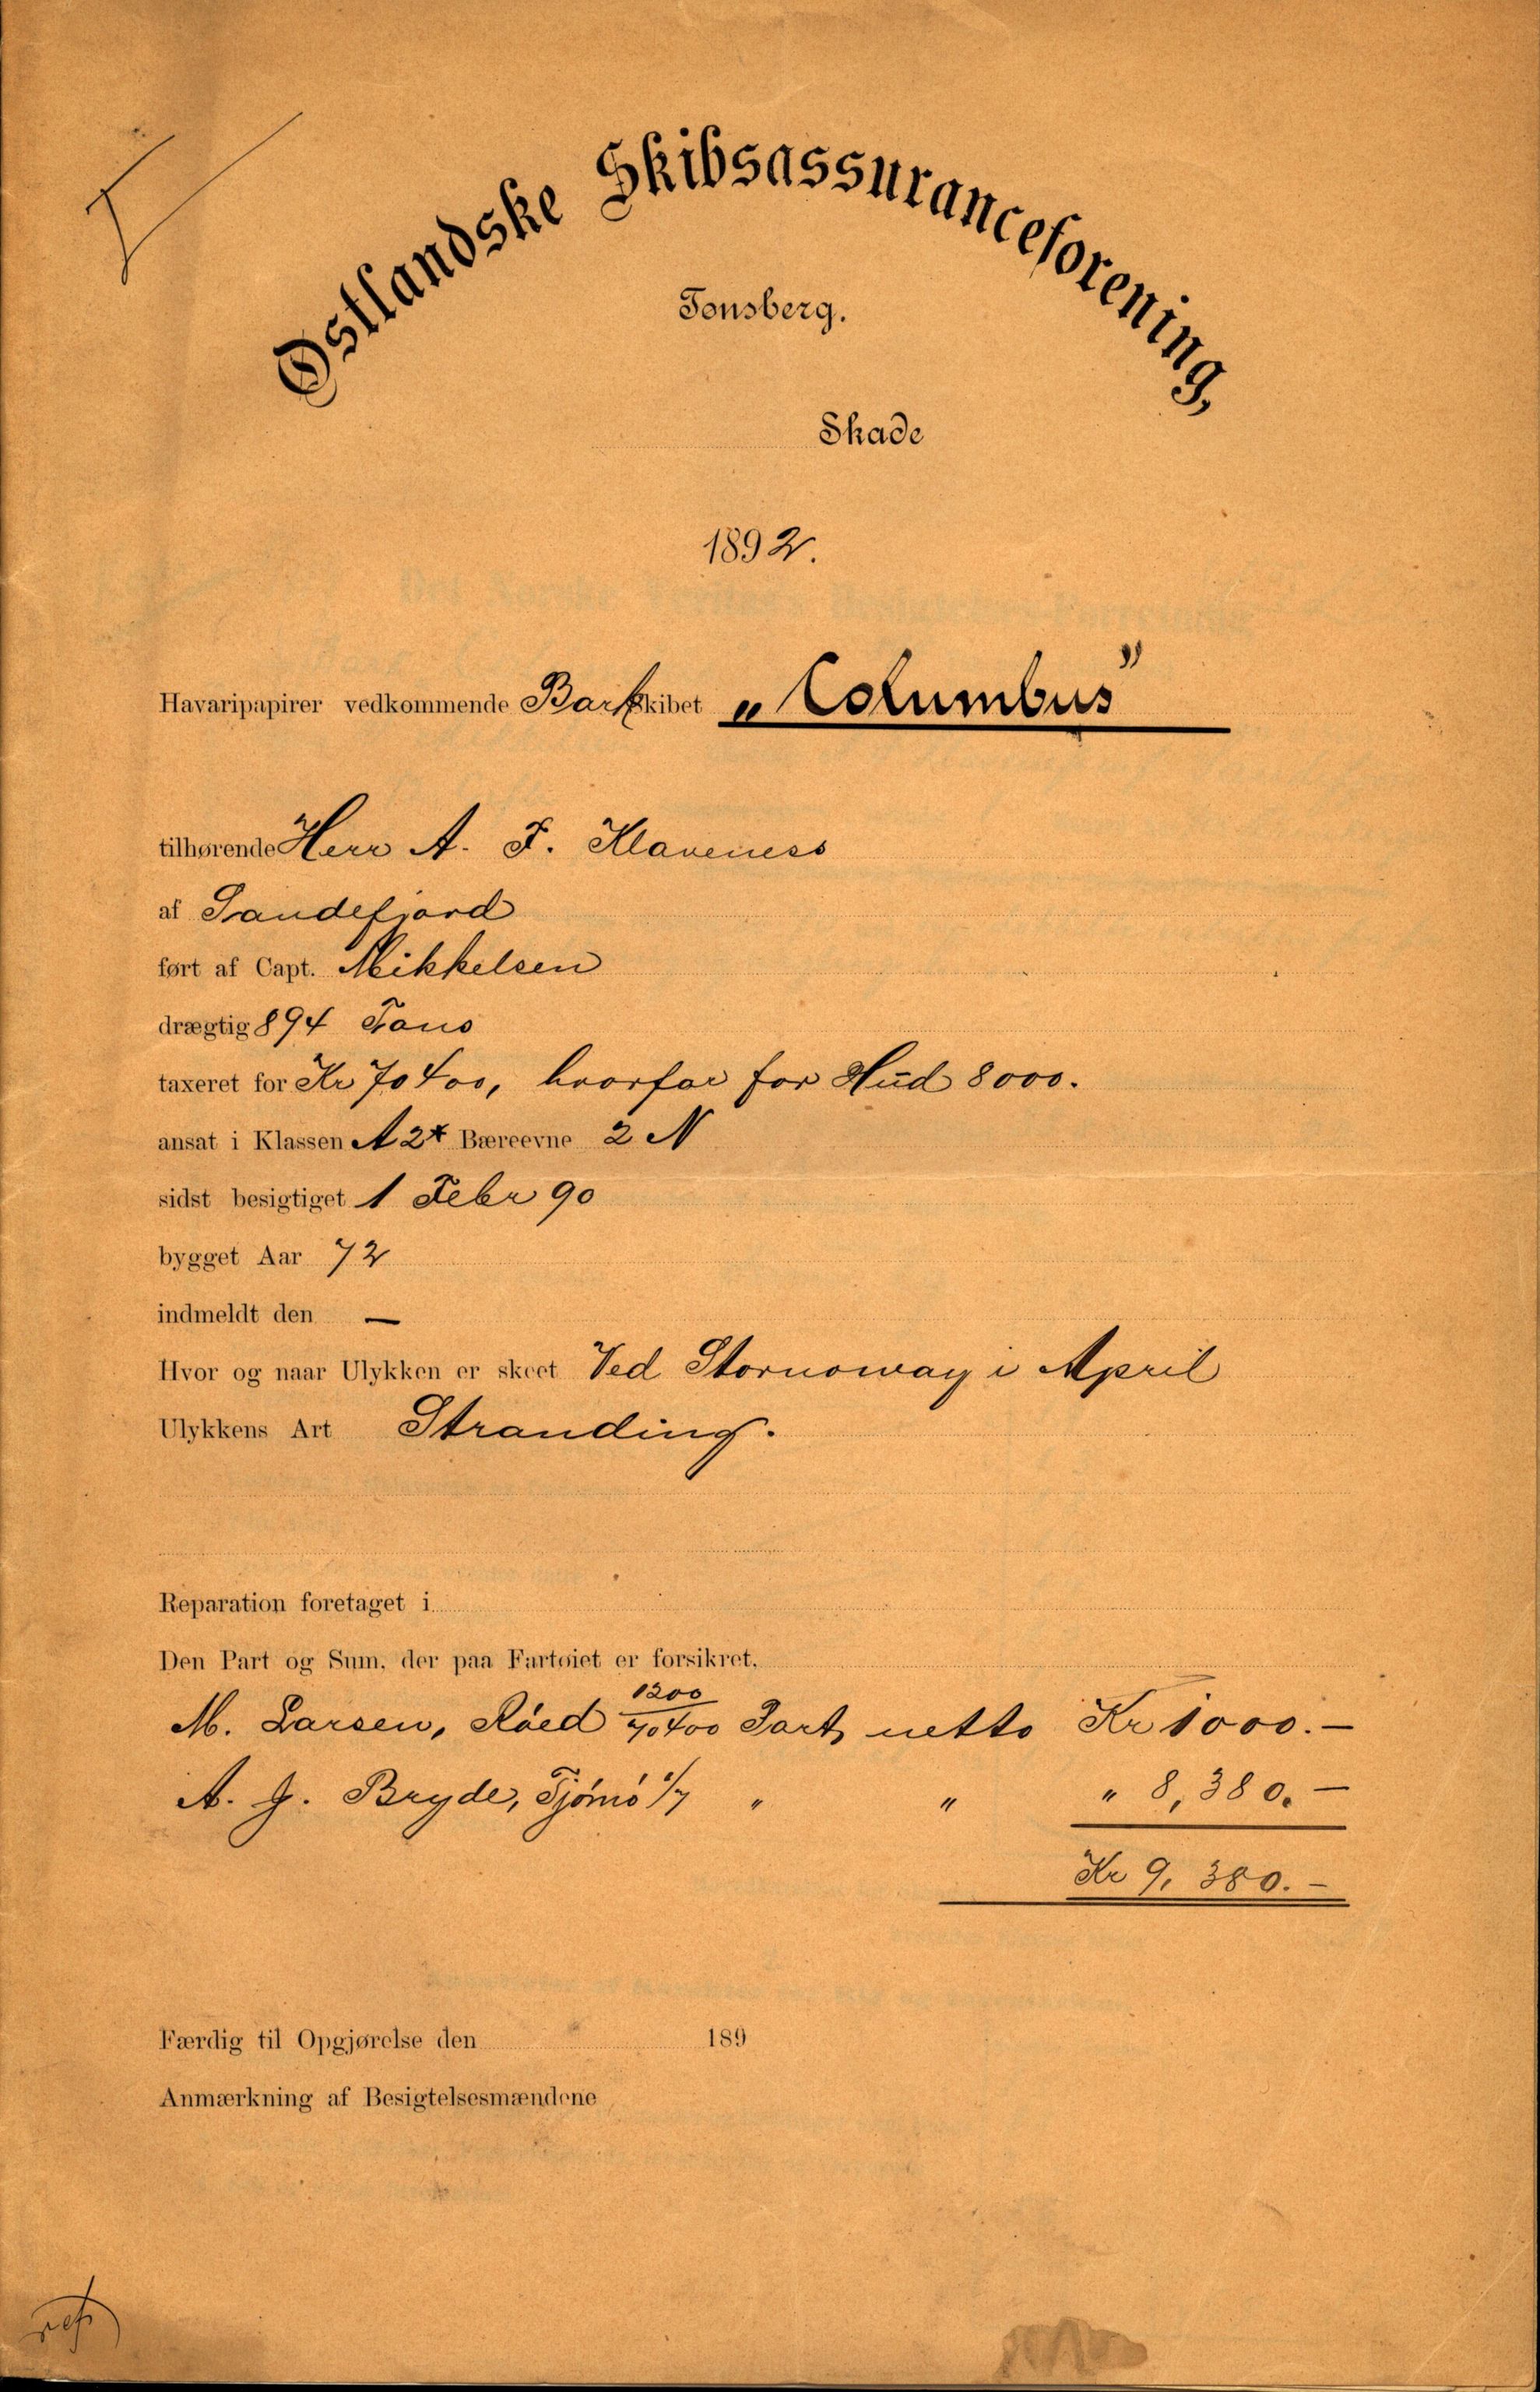 Østlandske Skibsassuranceforening,
Tønsberg.
Skade
1892.
Havaripapirer vedkommende Barkskibet „Columbus”
tilhørende Herr A. F. Klaveness
af Sandefjord
ført af Capt. Mikkelsen
drægtig 894 Tons
taxeret for Kr 70400, hvorfor for Hud 8000.
ansat i Klassen A2* Bæreevne 2 N
sidst besigtiget 1 Febr 90
bygget Aar 72
indmeldt den —
Hvor og naar Ulykken er skeet Ved Stornoway i April
Ulykkens Art Stranding.
Reparation foretaget i
Den Part og Sum, der paa Fartøiet er forsikret,
M. Larsen, Røed 1200/70400 Part, netto Kr 1000.—
A. J. Bryde, Tjømø 1/7 " " " 8,380.—
Kr 9,380.—
Færdig til Opgjørelse den 189
Anmærkning af Besigtelsesmændene